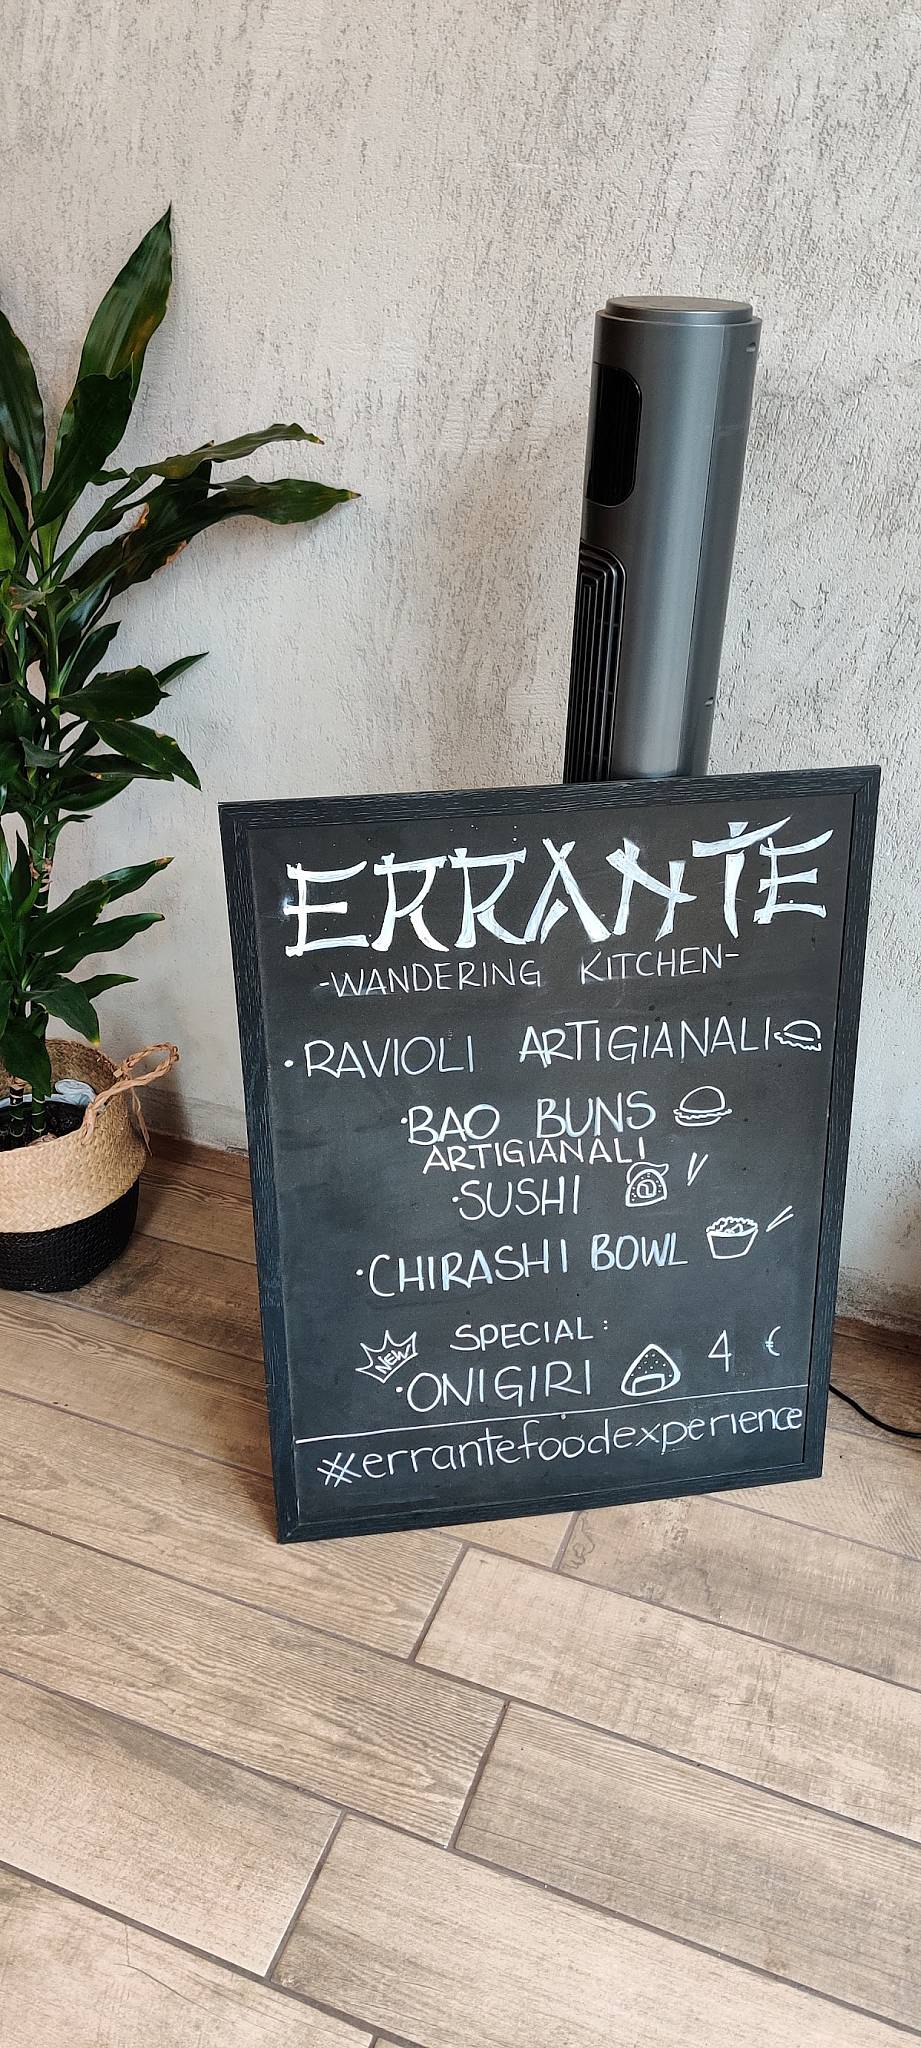 ERRANTE
-WANDERING KITCHEN-
·RAVIOLI ARTIGIANALI
·BAO BUNS
ARTIGIANALI
·SUSHI
·CHIRASHI BOWL
NEW SPECIAL:
·ONIGIRI 4 €
#errantefoodexperience